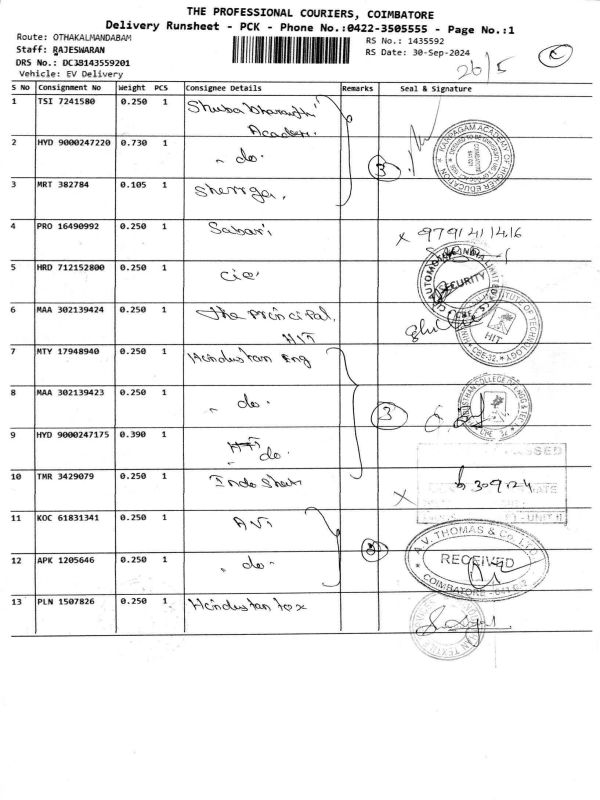 THE PROFESSIONAL COURIERS, COIMBATORE
Delivery Runsheet - PCK - Phone No.:0422-3505555 - Page No.:1
Route: OTHAKALMANDABAM
Staff: RAJESWARAN
DRS No.: DC38143559201
Vehicle: EV Delivery
RS No.: 1435592
RS Date: 30-Sep-2024
26/5
S No Consignment No Weight PCS Consignee Details Remarks Seal & Signature
1 TSI 7241580 0.250 1
2 HYD 9000247220 0.730 1 - do - 3
KARPAGAM ACADEMY OF HIGHER EDUCATION
3 MRT 382784 0.105 1
4 PRO 16490992 0.250 1 Sabari x 9791411416
5 HRD 712152800 0.250 1 cie
SECURITY
6 MAA 302139424 0.250 1 The Principal, HIT
HIT
7 MTY 17948940 0.250 1 Hindustan Eng
8 MAA 302139423 0.250 1 - do - 3
9 HYD 9000247175 0.390 1 do
10 TMR 3429079 0.250 1 Indo x
11 KOC 61831341 0.250 1 AVT
12 APK 1205646 0.250 1 - do -
A.V. THOMAS & Co. LTD.
RECEIVED
COIMBATORE
13 PLN 1507826 0.250 1 Hindustan tex